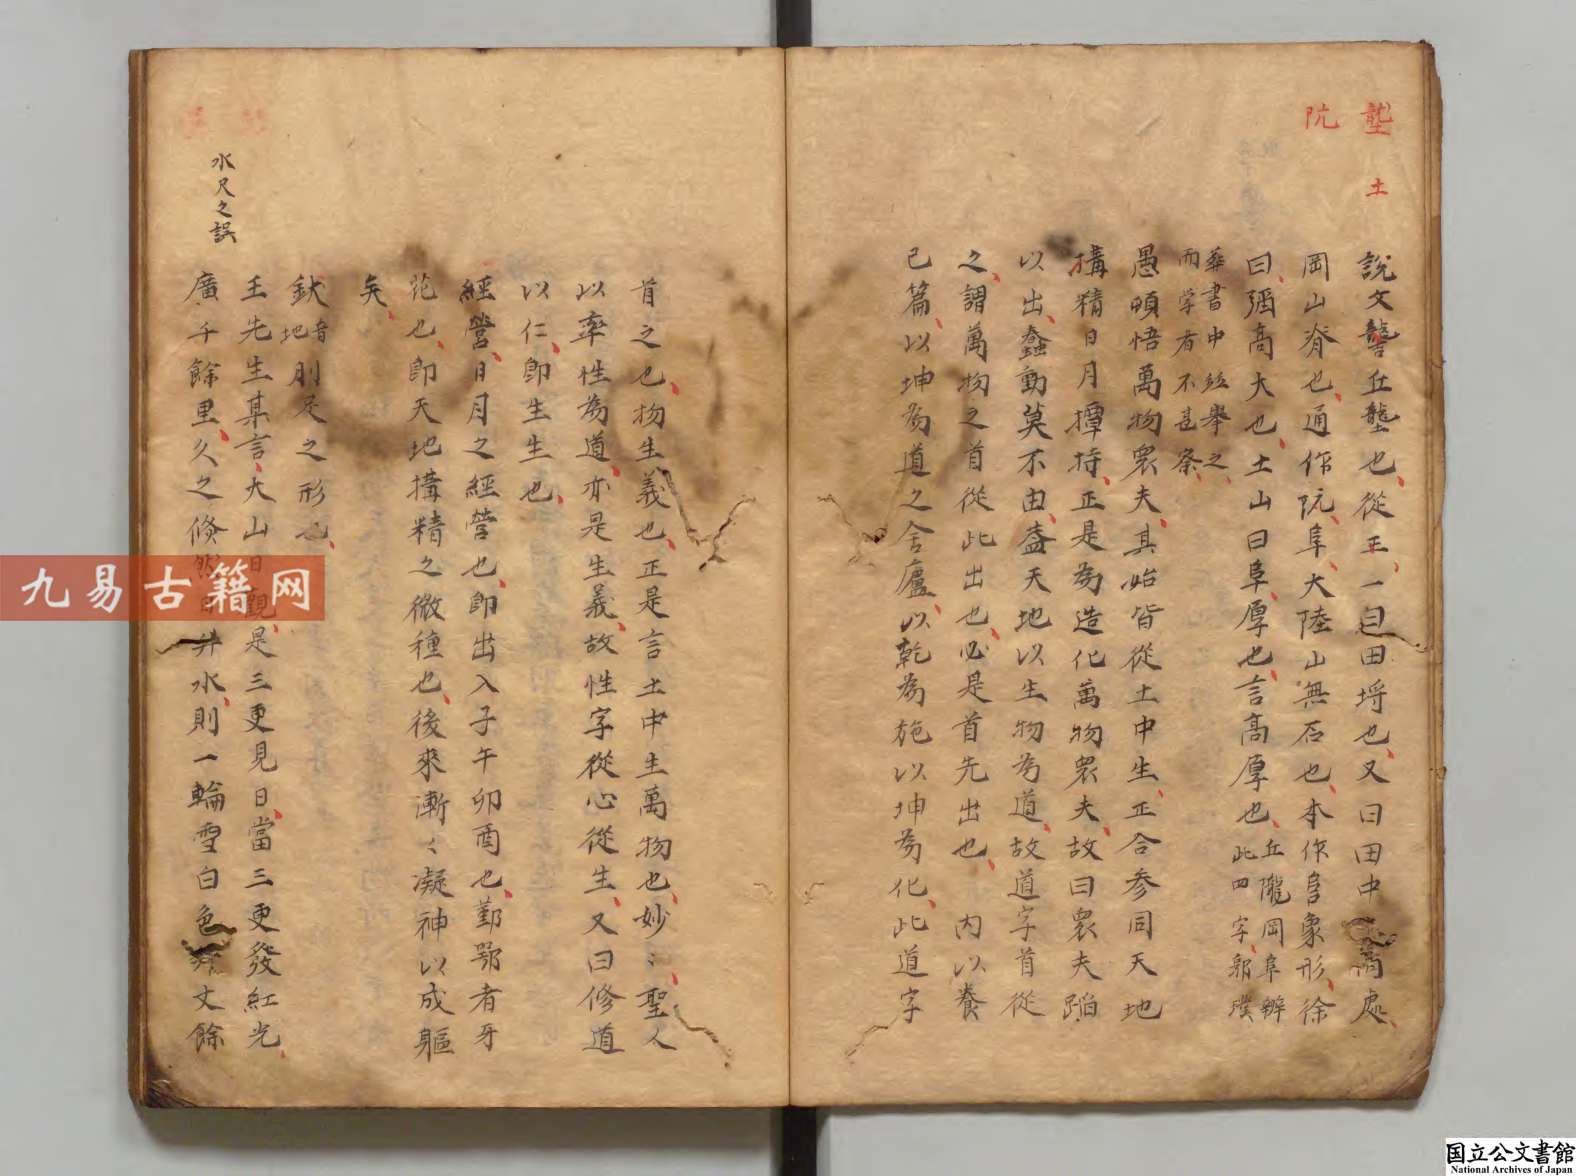 壟
土
阬
說文壟丘壟也從土一曰田埒也又曰田中高處
岡山脊也通作阬阜大陸山無石也本作𨸏象形徐
曰彊高大也土山曰阜厚也言高厚也丘隴岡阜辨
此四字郭璞
葬書中竝舉之
而学者不甚條
愚頓悟萬物衆夫其始皆從土中生正合參同天地
搆精日月撢持正是為造化萬物衆夫故曰衆夫蹈
以出蠢動莫不由葢天地以生物為道故道字首從
之謂萬物之首從此出也必是首先出也內以養
己篇以坤為道之舍廬以乾為施以坤為化此道字
首之也物生義也正是言土中生萬物也妙〻聖人
以率性為道亦是生義故性字從心從生又曰修道
以仁即生生也
經營日月之經營也即出入子午卯酉也鄞鄂者牙
花也即天地搆精之微種也後來漸〻凝神以成軀
矣
釱音地刖足之形也
水尺之誤
王先生某言大山日觀是三更見日當三更發紅光
廣千餘里久之倏然日升水則一輪雪白色升丈餘
九易古籍网
国立公文書館
National Archives of Japan